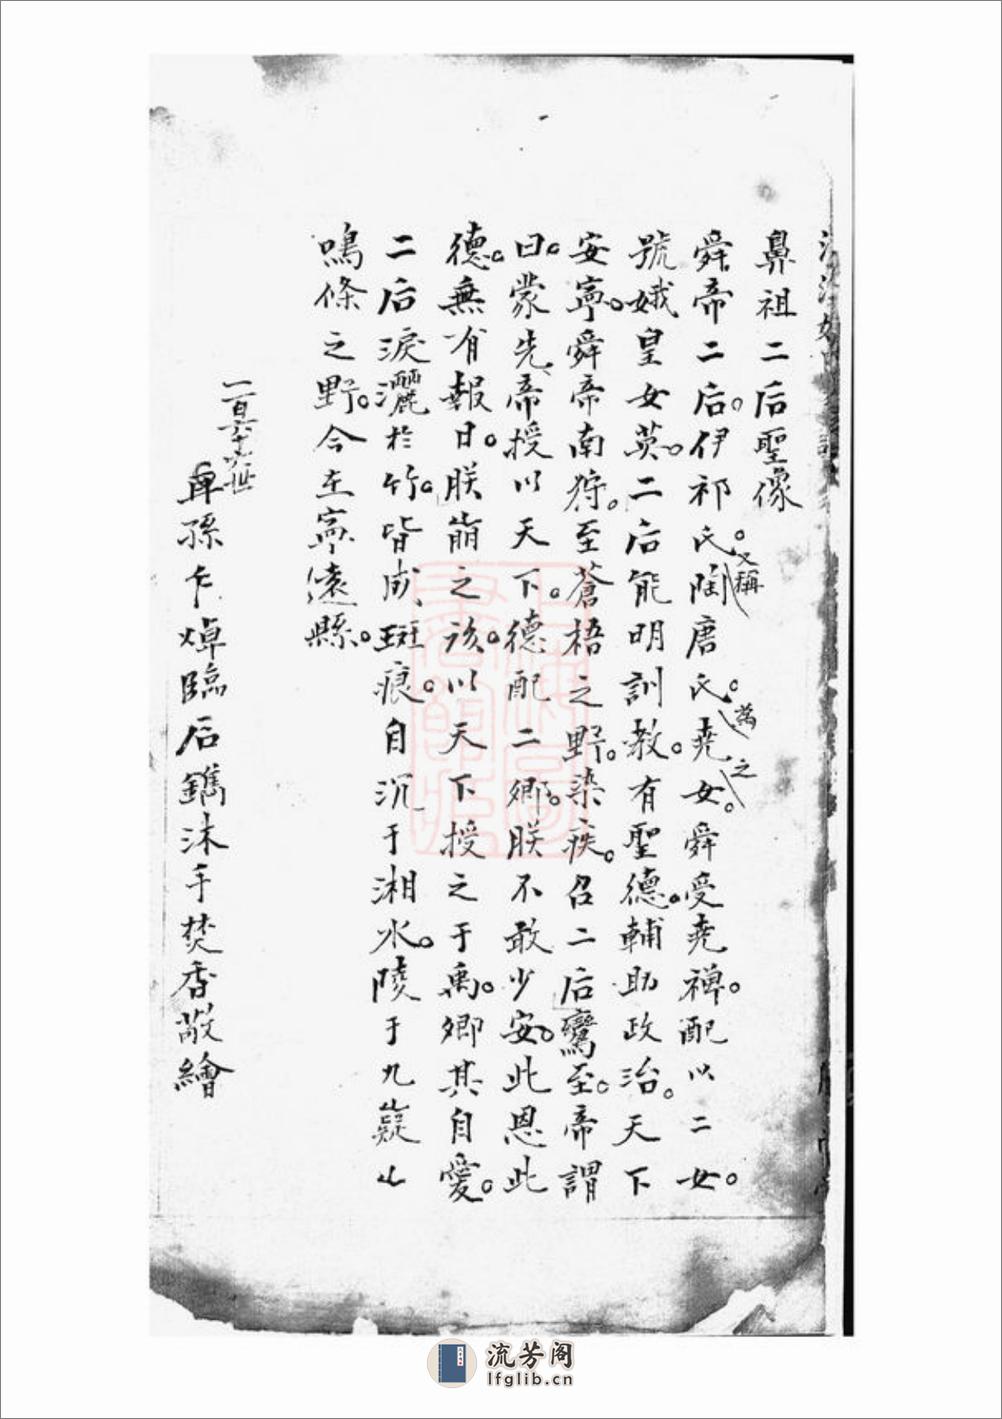 鼻祖二后聖像
舜帝二后。伊祁氏。又稱陶唐氏。堯為之女。舜受堯禪。配以二女。
號娥皇女英。二后能明訓教。有聖德。輔助政治。天下
安寧。舜帝南狩。至蒼梧之野。染疾。召二后鸞至。帝謂
曰。蒙先帝授以天下。德配二卿。朕不敢少安。此恩此
德。無有報日。朕崩之該。以天下授之于禹。卿其自愛。
二后淚灑於竹。皆成斑痕。自沉于湘水。陵于九嶷山
鳴條之野。今在寧遠縣。
一百六十世
孫乍焯臨后鐫沐手焚香敬繪
流芳阁
lfglib.cn